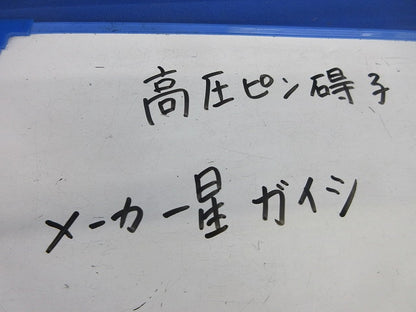 高圧ピン碍子
メーカー星ガイシ